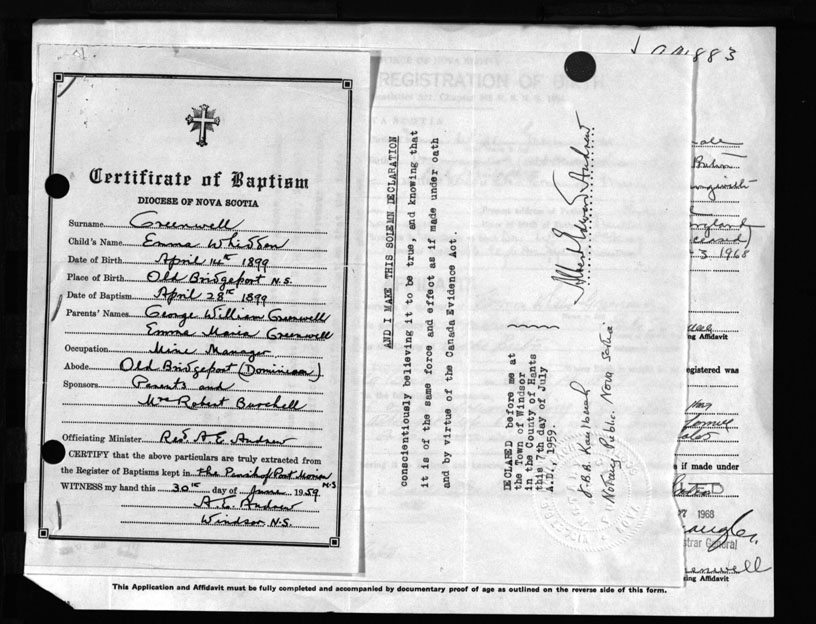 883
Certificate of Baptism
DIOCESE OF NOVA SCOTIA
Surname Greenwell
Child's Name Emma Whidden
Date of Birth April 14th 1899
Place of Birth Old Bridgeport N.S.
Date of Baptism April 28th 1899
Parents' Names George William Greenwell
Emma Maria Greenwell
Occupation Mine Manager
Abode Old Bridgeport (Dominion)
Sponsors Parents and
Mrs Robert Burchell
Officiating Minister Revd A. E. Andrew
I CERTIFY that the above particulars are truly extracted from
the Register of Baptisms kept in the Parish of Port Morien N.S
WITNESS my hand this 30th day of June 1959
A. E. Andrew
Windsor N.S.
AND I MAKE THIS SOLEMN DECLARATION
conscientiously believing it to be true, and knowing that
it is of the same force and effect as if made under oath
and by virtue of the Canada Evidence Act.
DECLARED before me at
the Town of Windsor
in the County of Hants
this 7th day of July
A.D., 1959.
Albert Edward Andrew
Notary Public. Nova Scotia
REGISTRATION OF BIRTH
3 1968
ing Affidavit
egistered was
e if made under
27 1968
strar General
enwell
ing Affidavit
This Application and Affidavit must be fully completed and accompanied by documentary proof of age as outlined on the reverse side of this form.